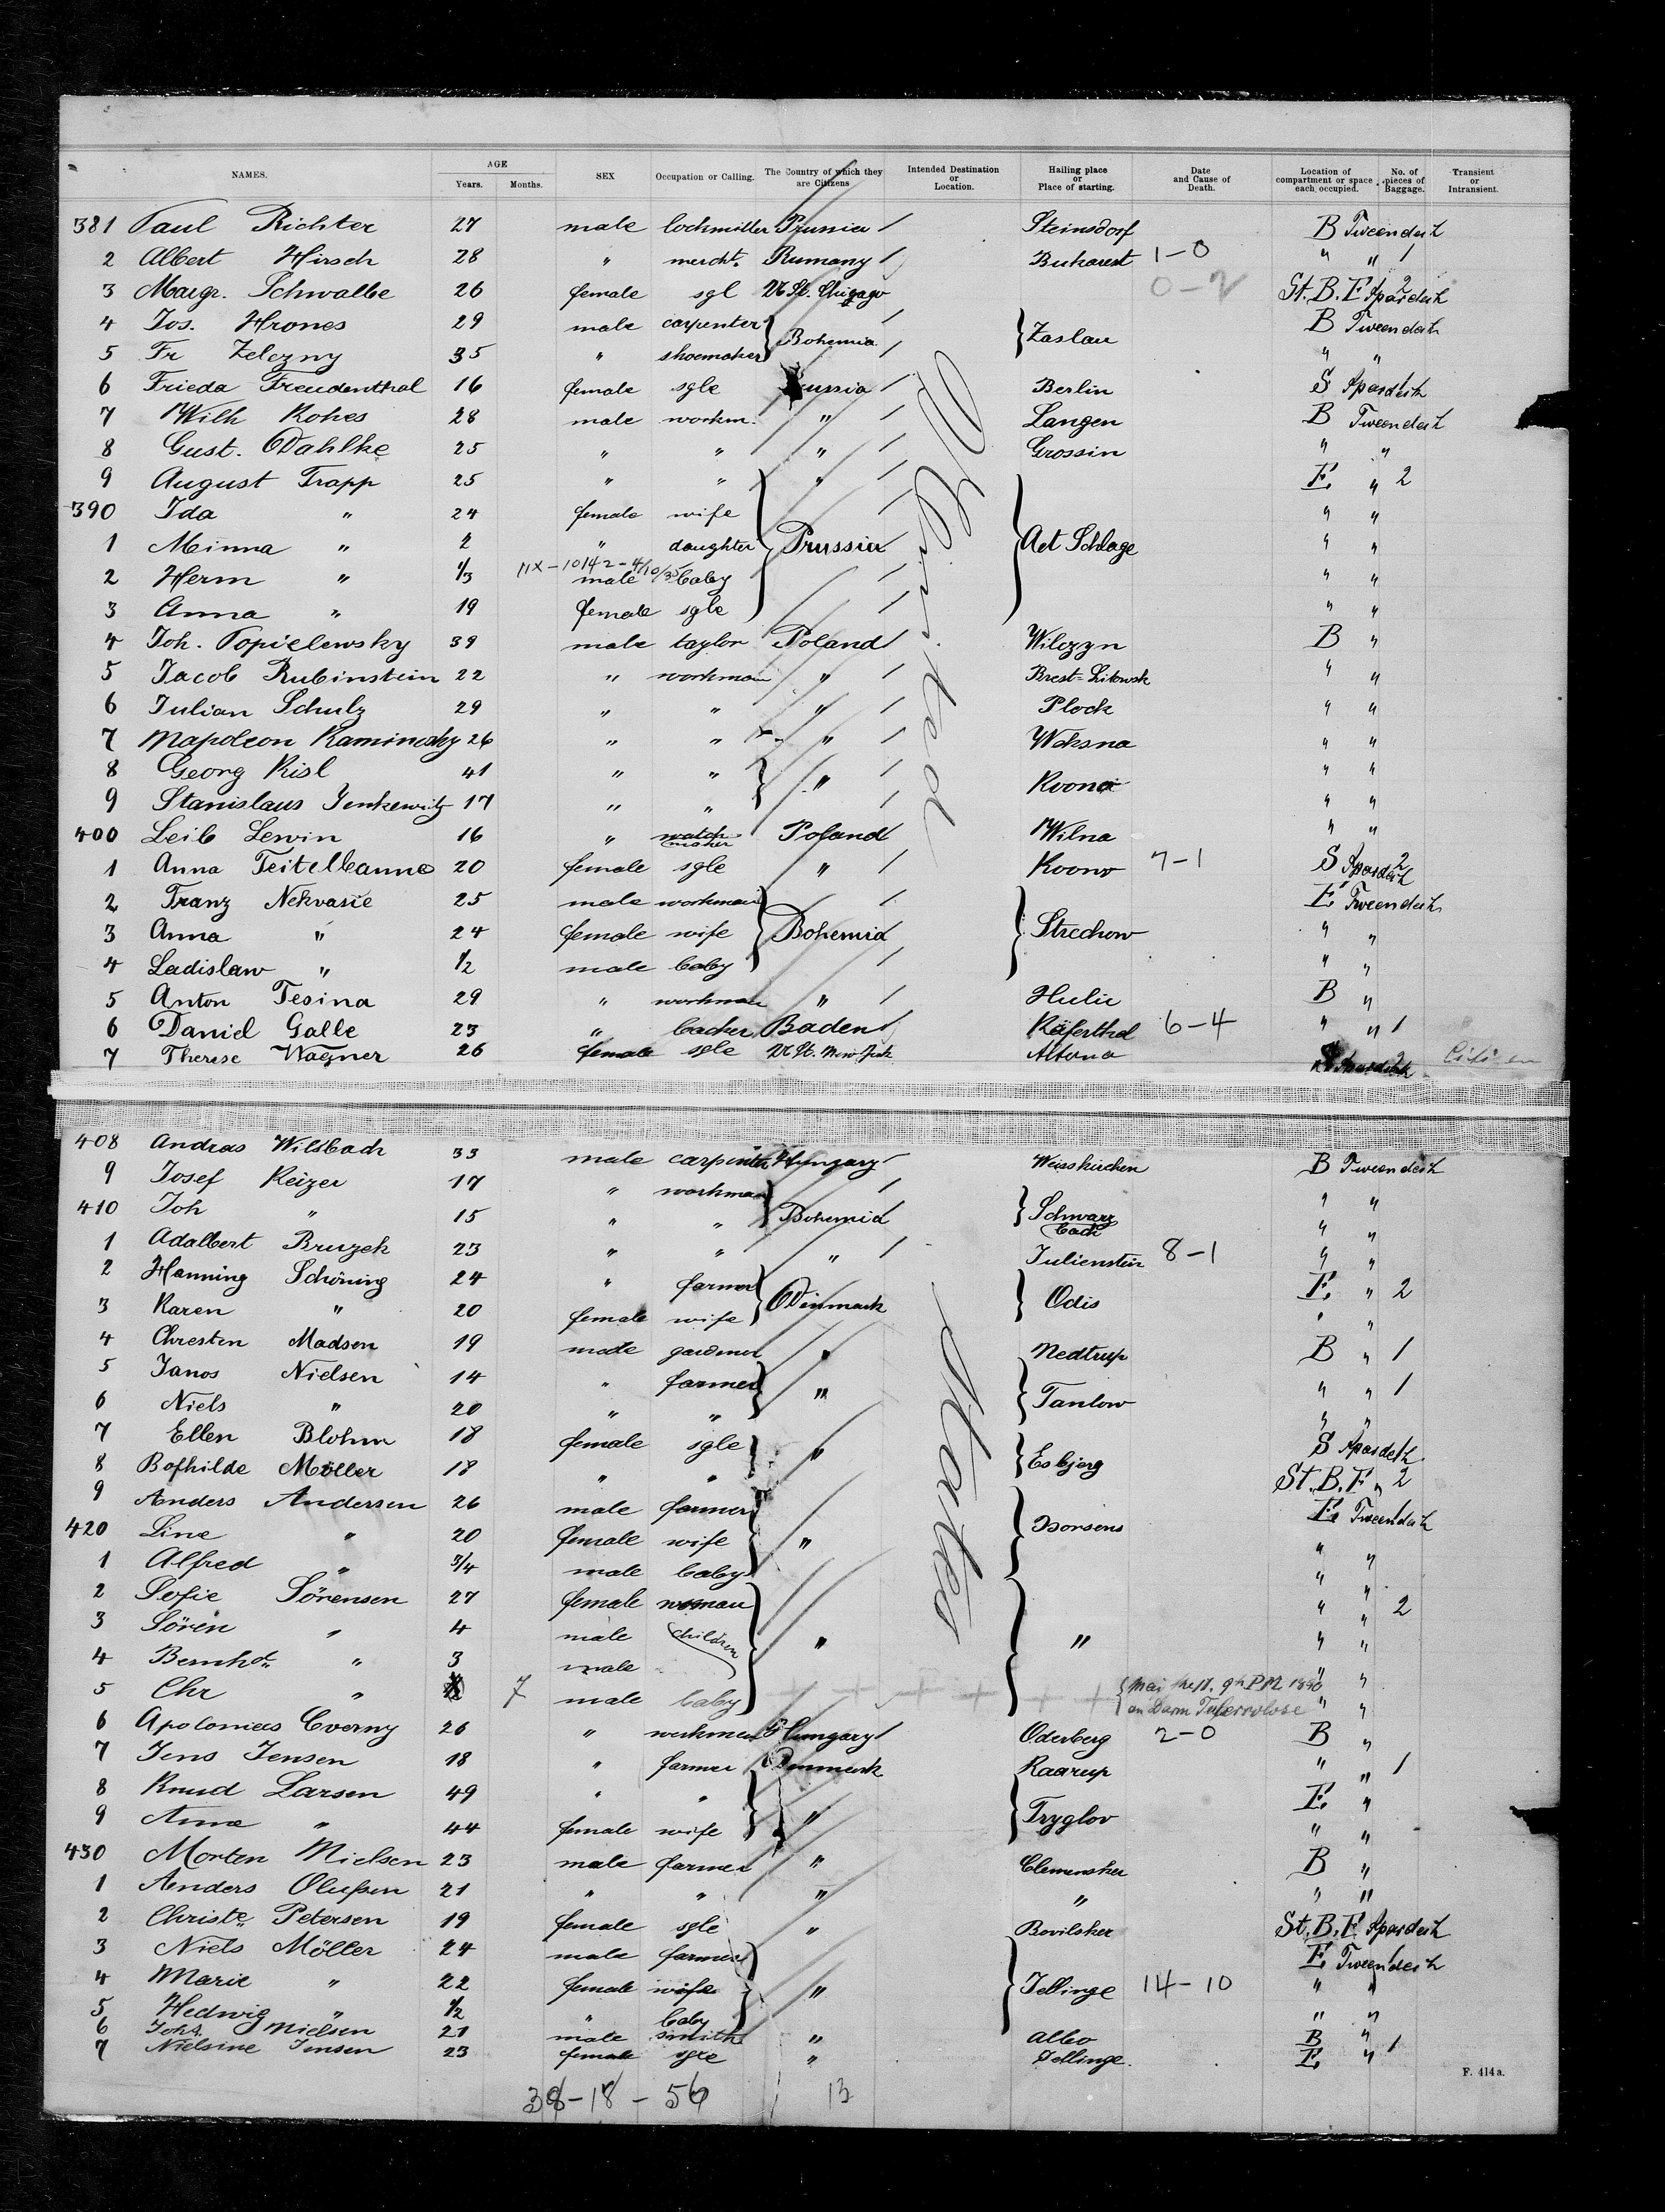 NAMES. AGE Years. Months. SEX Occupation or Calling. The Country of which they are Citizens Intended Destination or Location. Hailing place or Place of starting. Date and Cause of Death. Location of compartment or space each occupied. No. of pieces of Baggage. Transient or Intransient.
381 Paul Richter 27 male Prussia / Steinsdorf B Tweendeck
2 Albert Hirsch 28 " mercht. Rumany / Bukarest 1-0 " " 1
3 Margr. Schwalbe 26 female sgl U St. Chicago 0-2 St. B. E Spardeck 2
4 Jos. Hrones 29 male carpenter } Bohemia / } Zaslau B Tweendeck
5 Fr Zelezny 35 " shoemaker / " "
6 Frieda Freudenthal 16 female sgle Prussia / Berlin S Spardeck 1
7 Wilh Kohes 28 male workm. " / Langen B Tweendeck
8 Gust. Dahlke 25 " " " / Grossin " "
9 August Trapp 25 " " " / E " 2
390 Ida " 24 female wife / " "
1 Minna " 2 " daughter } Prussia } Act Schlage " "
2 Herm " 1/3 11X-10142-4/10/35 male baby / " "
3 Anna " 19 female sgle / " "
4 Joh. Popielewsky 39 male taylor Poland / Wilczyn B "
5 Jacob Rubinstein 22 " workman " / Brest-Litowsk " "
6 Julian Schulz 29 " " " / Plock " "
7 Napoleon Kaminsky 26 " " x- " / Woksna " "
8 Georg Kisl 41 " " } " / " "
9 Stanislaus Jenkewitz 17 " " / Kovno " "
400 Leib Lewin 16 " watch maker Poland / Wilna " "
1 Anna Teitelbaum 20 female sgle " / Kovno 7-1 S Spardeck 2
2 Franz Nekvasie 25 male workman / E Tweendeck
3 Anna " 24 female wife } Bohemia } Strechow " "
4 Ladislaw " 1/2 male baby / " "
5 Anton Tesina 29 " workman " / Hulic B "
6 Daniel Galle 23 " backer Baden / Käferthal 6-4 " " 1
7 Therese Wagner 26 female sgle U St. New York Altona Spardeck 2 Citizen
United
408 Andras Wilsbach 33 male carpenter Hungary / Weisskirchen B Tweendeck
9 Josef Keizer 17 " workman / " "
410 Joh " 15 " " } Bohemia / } Schwarzbach " "
1 Adalbert Bruzek 23 " " " / Julienstein 8-1 " "
2 Hanning Schöning 24 " farmer } Denmark } Odis E " 2
3 Karen " 20 female wife " "
4 Chresten Madsen 19 male gardener " Nedtrup B " 1
5 Janos Nielsen 14 " farmer } " } Tanlow " " 1
6 Niels " 20 " " " "
7 Ellen Blohm 18 female sgle } " } Esbjerg S Spardeck 1
8 Bothilde Möller 18 " " St. B. E " 2
9 Anders Andersen 26 male farmer E Tweendeck 1
420 Line " 20 female wife } " } Horsens " "
1 Alfred " 3/4 male baby " "
2 Sofie Sörensen 27 female woman " " 2
3 Sören " 4 male children } " } " " "
4 Bernhd. " 3 male " "
5 Chr " 7 male baby + + + + + + { Mai 9h PM 1890 an Darm Tuberculose " "
6 Czerny 26 " workman Hungary / Oderberg 2-0 B "
7 Jens Jensen 18 " farmer Denmark Raarup " " 1
8 Knud Larsen 49 " " } " } Tryglov E "
9 Anna " 44 female wife " "
430 Morten Nielsen 23 male farmer " Clemensker B "
1 Anders Olufsen 21 " " " " " "
2 Christe Petersen 19 female sgle " Bovilsker St. B. E Spardeck
3 Niels Möller 24 male farmer E Tweendeck 1
4 Marie " 22 female wife } " } Jellinge 14-10 " "
5 Hedwig " 1/2 " baby " "
6 Johs. Nielsen 21 male smith " Albo B " 1
7 Nielsine Jensen 23 female sgle " Jellinge. E "
States
38-18-56 13
F. 414a.